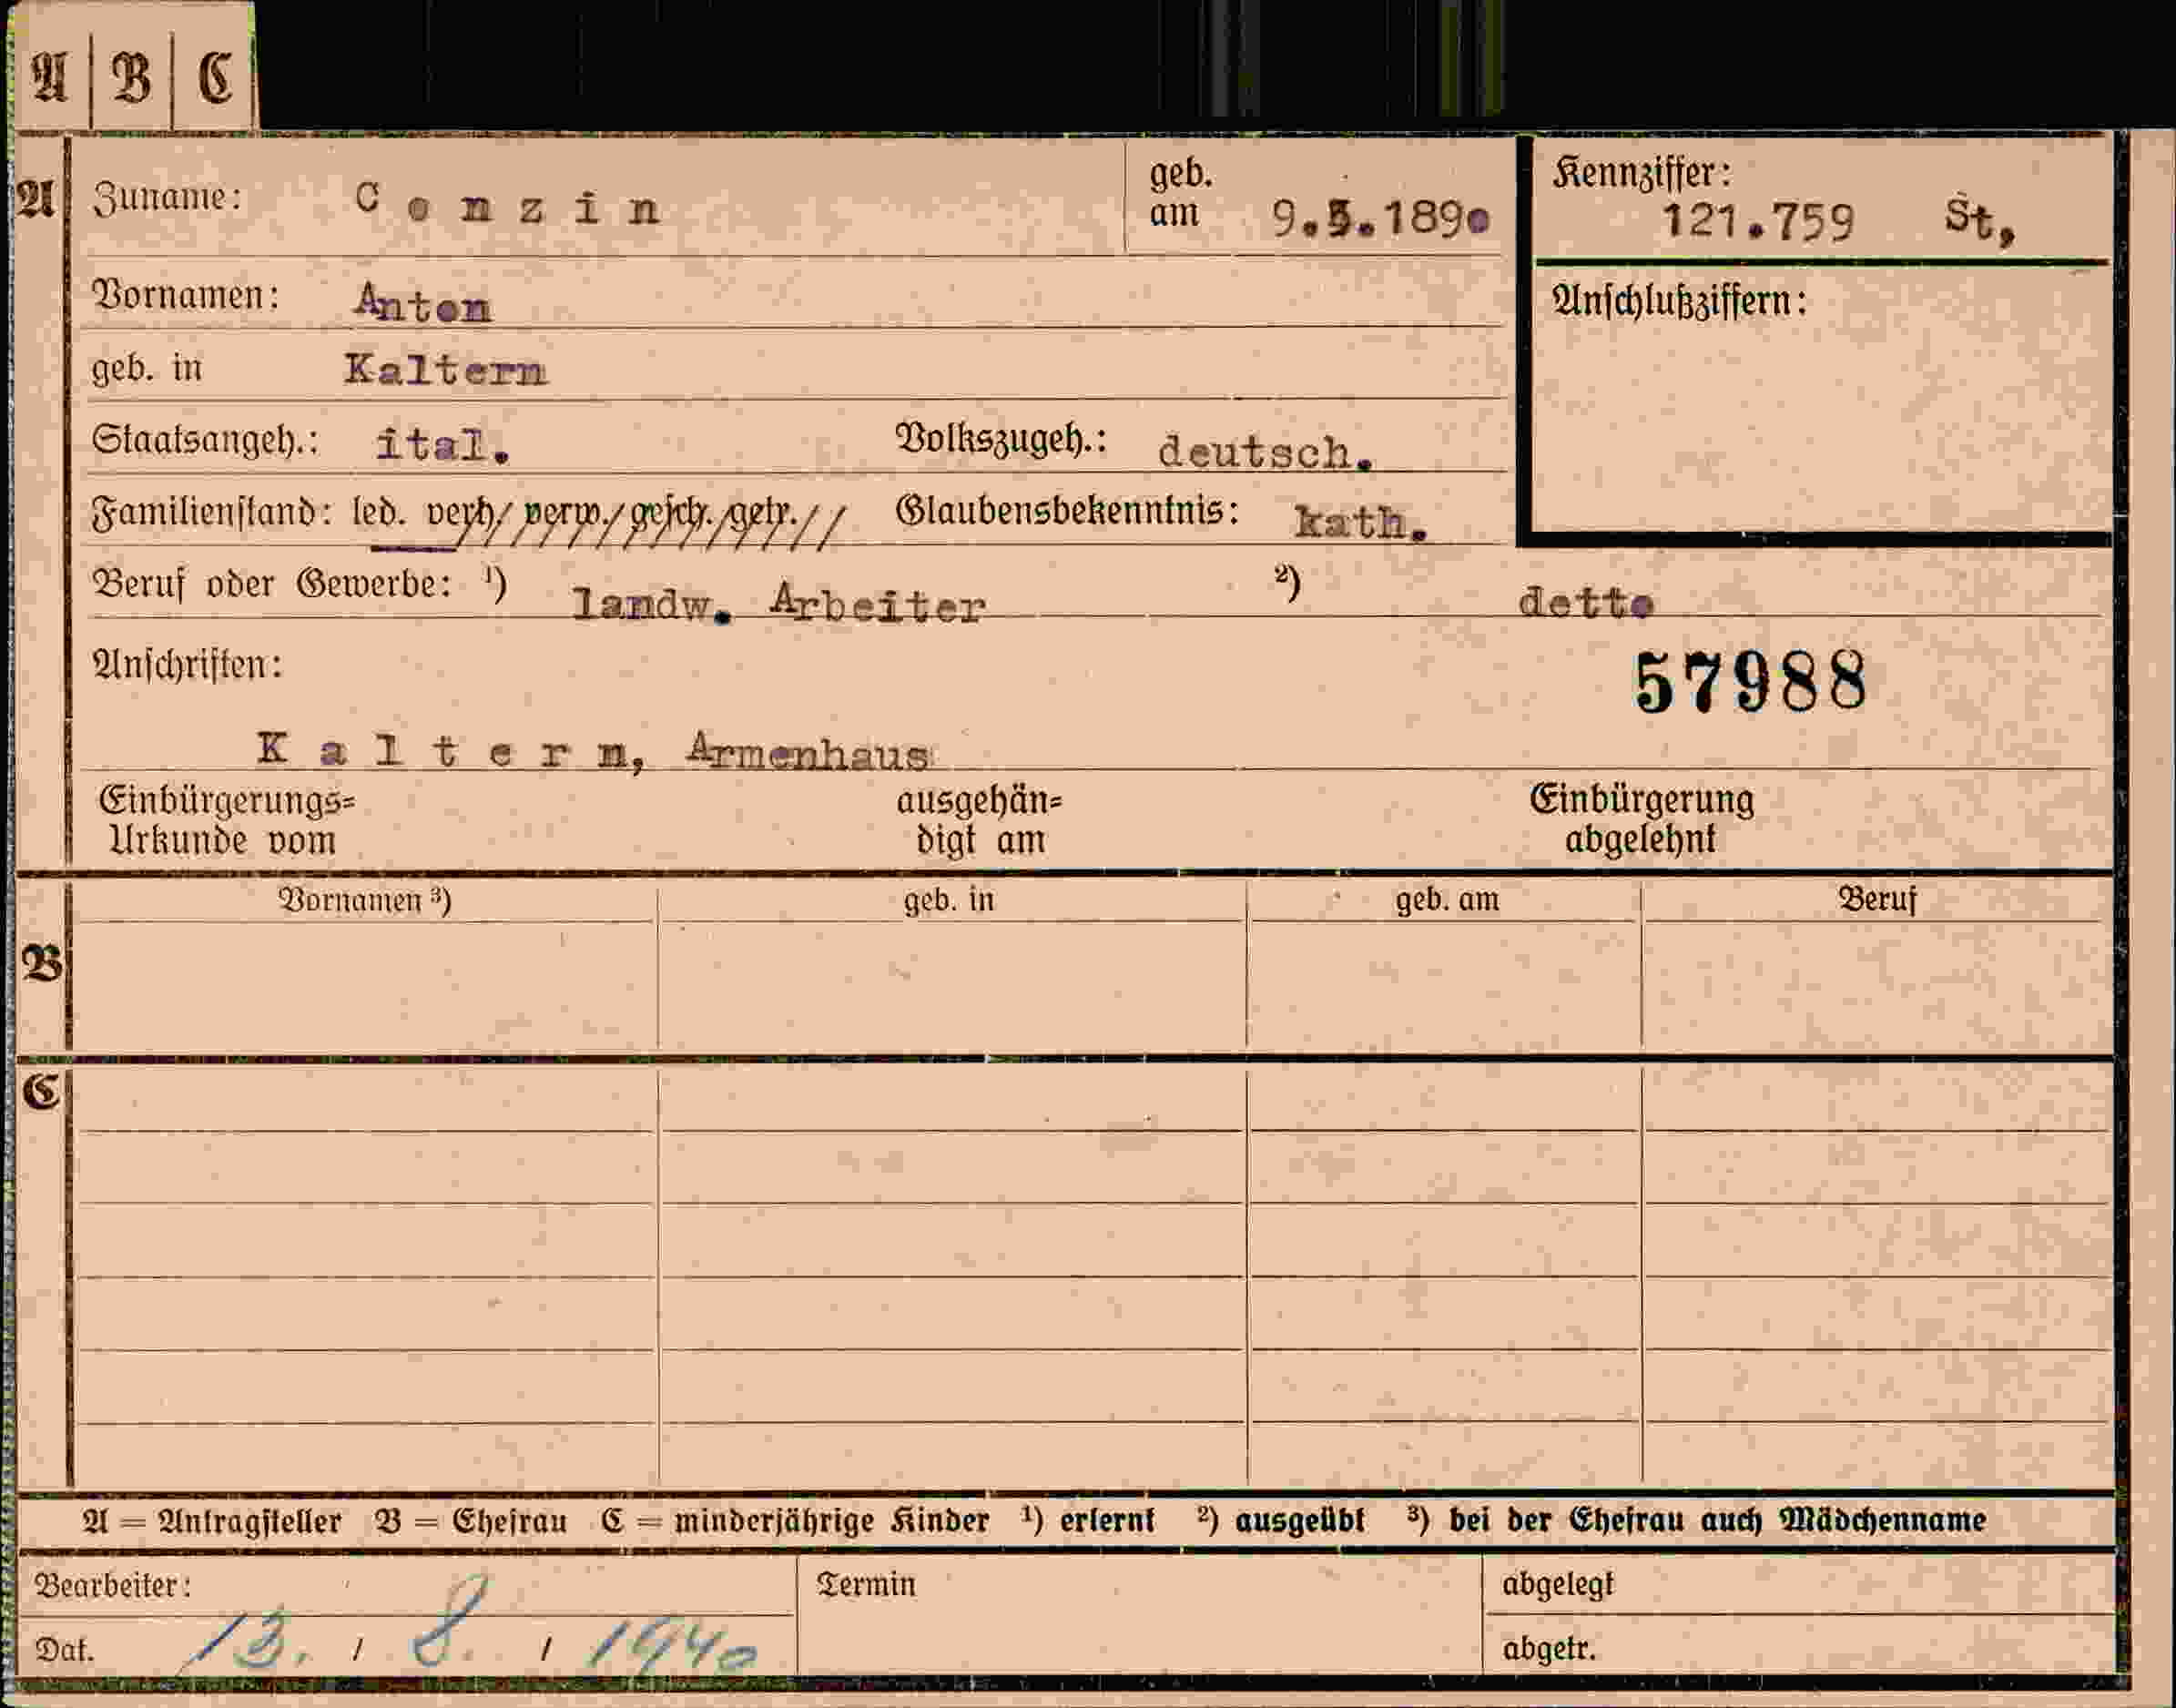 A | B | C
A Zuname: C o n z i n geb. am 9.5.189o Kennziffer: 121.759 St,
Vornamen: Anton Anschlußziffern:
geb. in Kaltern
Staatsangeh.: ital. Volkszugeh.: deutsch.
Familienstand: led. verh. verw. gesch. getr. Glaubensbekenntnis: kath.
Beruf oder Gewerbe: ¹) landw. Arbeiter ²) detto
Anschriften: 57988
K a l t e r n, Armenhaus
Einbürgerungs= ausgehän= Einbürgerung
Urkunde vom digt am abgelehnt
Vornamen ³) geb. in geb. am Beruf
B
C
A = Antragsteller B = Ehefrau C = minderjährige Kinder ¹) erlernt ²) ausgeübt ³) bei der Ehefrau auch Mädchenname
Bearbeiter: Termin abgelegt
Dat. 13. / 8. / 1940 abgetr.